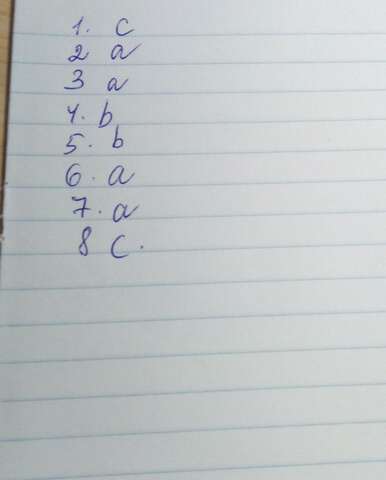 1. c
2 a
3 a
4. b
5. b
6. a
7. a
8 c.